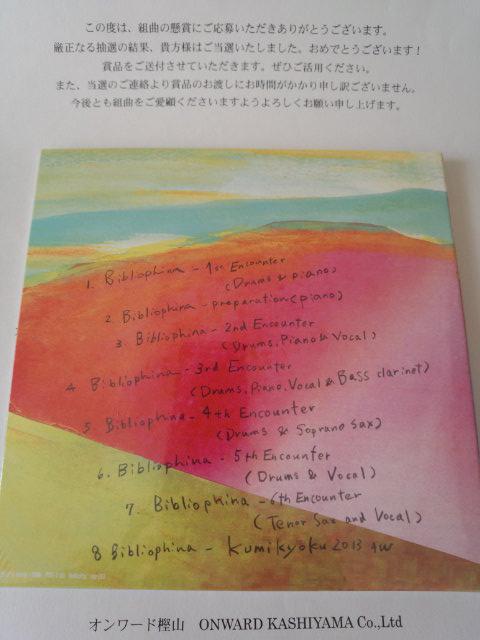 この度は、組曲の懸賞にご応募いただきありがとうございます。
厳正なる抽選の結果、貴方様はご当選いたしました。おめでとうございます！
賞品をご送付させていただきます。ぜひご活用ください。
また、当選のご連絡より賞品のお渡しにお時間がかかり申し訳ございません。
今後とも組曲をご愛顧くださいますようよろしくお願い申し上げます。
1. Bibliophina - 1st Encounter
(Drums & piano)
2. Bibliophina - preparation (piano)
3 Bibliophina - 2nd Encounter
(Drums, Piano & Vocal)
4 Bibliophina - 3rd Encounter
(Drums, Piano, Vocal & Bass clarinet)
5 Bibliophina - 4th Encounter
(Drums & Soprano Sax)
6. Bibliophina - 5th Encounter
(Drums & Vocal)
7. Bibliophina - 6th Encounter
(Tenor Sax and Vocal)
8 Bibliophina - Kumikyoku 2013 AW
オンワード樫山 ONWARD KASHIYAMA Co.,Ltd